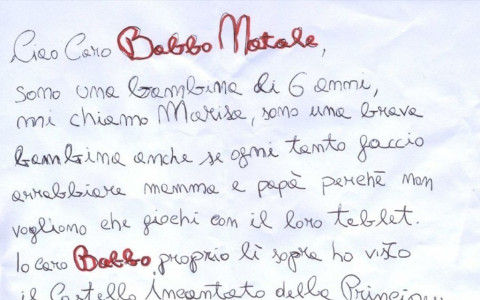 Ciao Caro Babbo Natale,
sono una bambina di 6 anni,
mi chiamo Marisa, sono una brava
bambina anche se ogni tanto faccio
arrabbiare mamma e papà perchè non
vogliono che giochi con il loro tablet.
Io caro Babbo, proprio lì sopra ho visto
il Castello Incantato della Princip